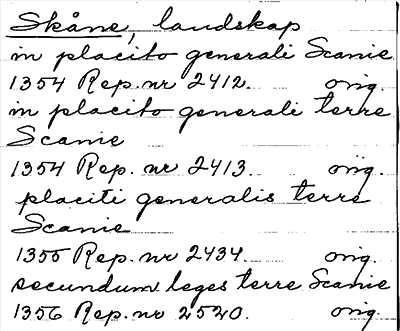 Skåne, landskap
in placito generali Scanie
1354 Rep. nr 2412. orig.
in placito generali terre
Scanie
1354 Rep. nr 2413. orig.
placiti generalis terre
Scanie
1355 Rep. nr 2434. orig.
secundum leges terre Scanie
1356 Rep. nr 2520. orig.